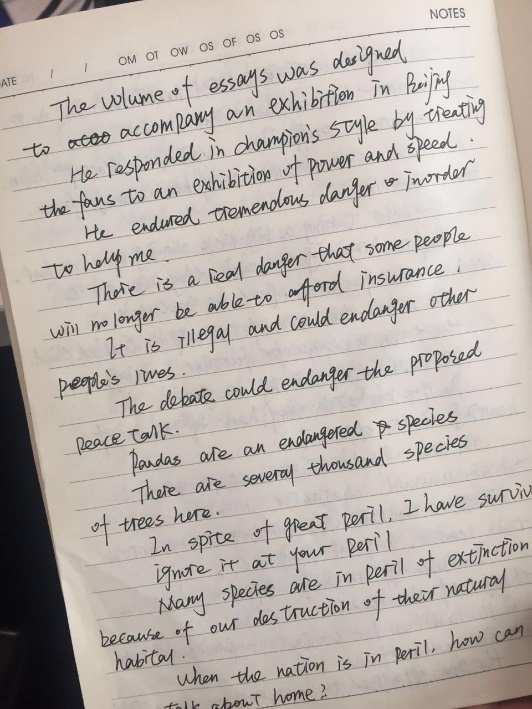 NOTES
ATE / /
OM OT OW OS OF OS OS
The volume of essays was designed
to acco accompany an exhibition in Beijing
He responded in champion's style by treating
the fans to an exhibition of power and speed.
He endured tremendous danger inorder
to help me.
There is a real danger that some people
will no longer be able to afford insurance.
It is illegal and could endanger other
people's lives.
The debate could endanger the proposed
peace talk.
Pandas are an endangered species
There are several thousand species
of trees here.
In spite of great peril, I have surviv
ignore it at your peril
Many species are in peril of extinction
because of our destruction of their natural
habital.
When the nation is in peril, how can
talk about home?